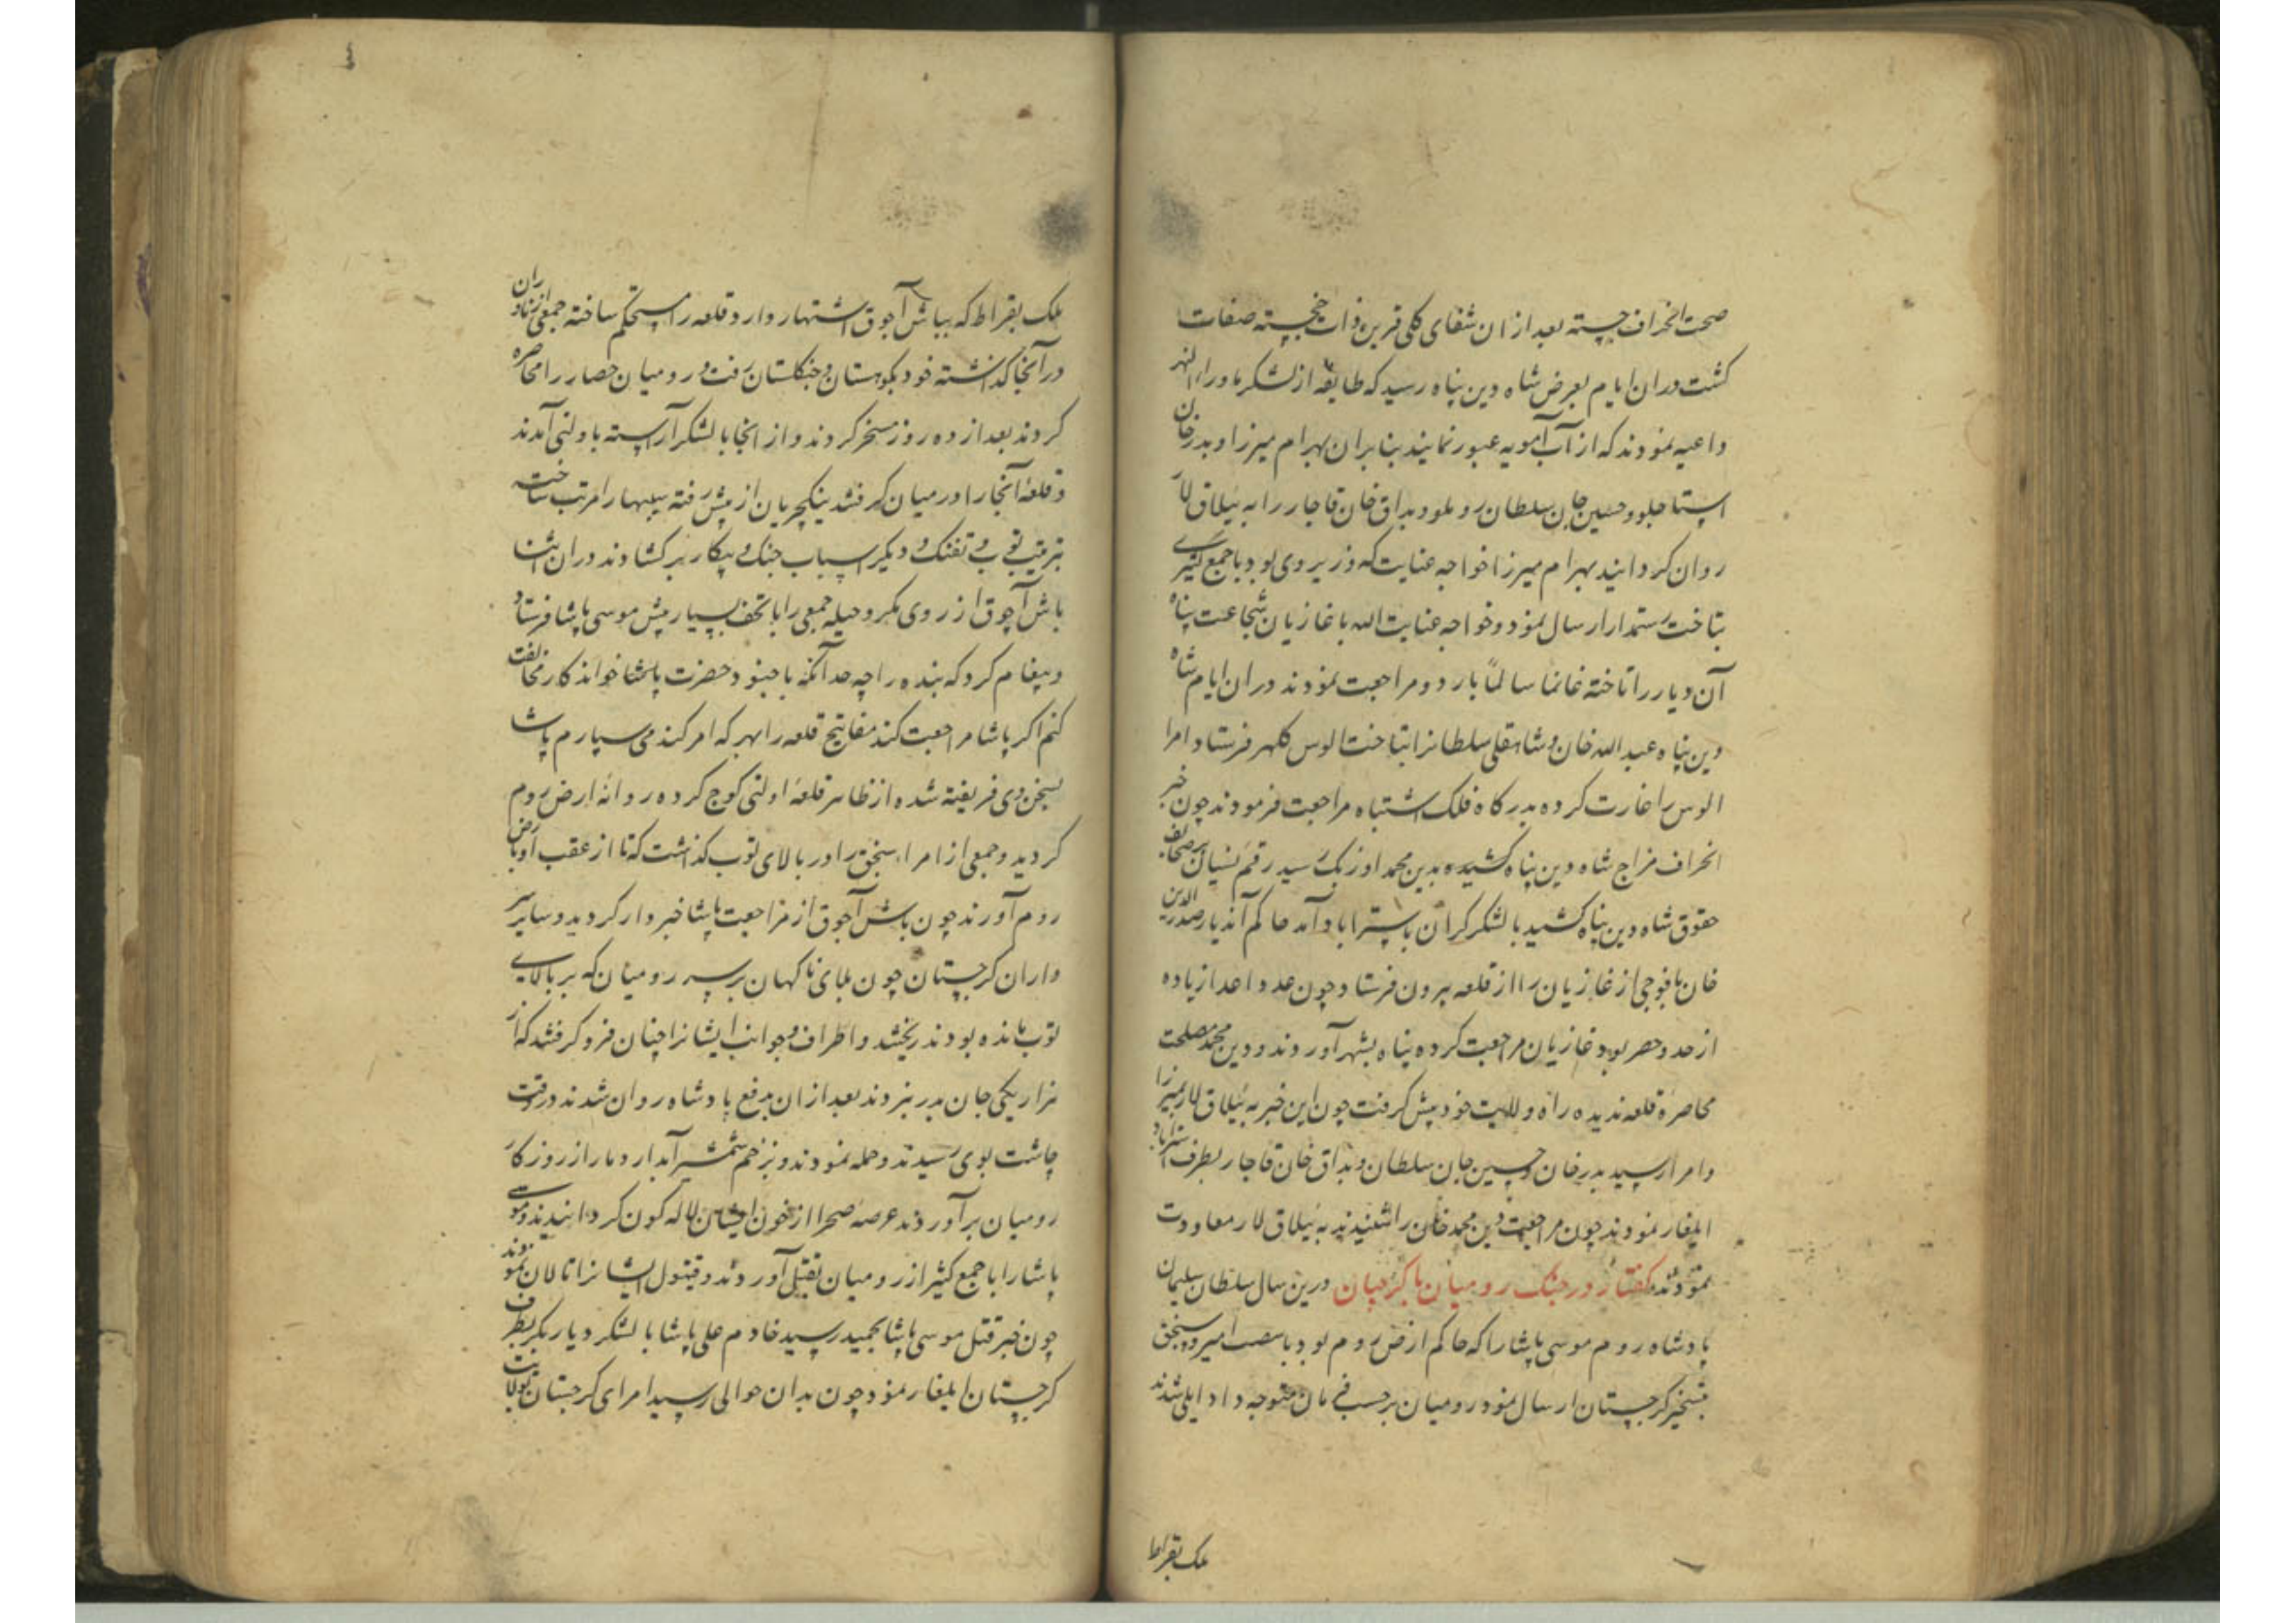 صحت انحراف جسته بعد از ان شفای کلی قرین ذات خجسته صفات
کشت دران ایام بعرض شاه دین پناه رسید که طایفه از لشکر ماوراء النهر
داعیه نمودند که از آب آمویه عبور نمایند بنابران بهرام میرزا و بدرخان
استاجلو و حسین جان سلطان روملو و بداق خان قاجار را به ییلاق لار
روان کردانید بهرام میرزا خواجه عنایت که وزیر وی بود با جمع کثیری
بتاخت رستمدار ارسال نمود و خواجه عنایت الله با غازیان شجاعت پناه
آن دیار را تاخته غانما سالماً بار دو مراجعت نمودند دران ایام شاه
دین پناه عبد الله خان و شاهقلی سلطانرا بتاخت الوس کلهر فرستاد امرا
الوس را غارت کرده بدرکاه فلک اشتباه مراجعت فرمودند چون خبر
انحراف مزاج شاه دین پناه کشیده بدین محمد اوزبک رسید رقم نسیان بر صحایف
حقوق شاه دین پناه کشید با لشکر کران باستراباد آمد حاکم آندیار صدر الدین
خان با فوجی از غازیان را از قلعه بیرون فرستاد چون عدد اعدا زیاده
از حد و حصر بود غازیان مراجعت کرده پناه بشهر آوردند و دین محمد مصلحت
محاصره قلعه ندیده راه ولایت خود پیش کرفت چون این خبر به ییلاق لار بمیرزا
و امرا رسید بدرخان و حسین جان سلطان و بداق خان قاجار بطرف استراباد
ایلغار نمودند چون مراجعت دین محمد خان را شنیدند به ییلاق لار معاودت
نمودند کفتار در جنک رومیان با کرجیان درین سال سلطان سلیمان
پادشاه روم موسی پاشا را که حاکم ارض روم بود با امیر و سنجق
بتسخیر کرجستان ارسال نمود رومیان برحسب فرمان متوجه داد ایلی شدند
ملک بقراط
ملک بقراط که بباش آجوق اشتهار دارد قلعه را مستحکم ساخته جمعی از ناوران
در آنجا کذاشته خود بکوهستان و جنکلستان رفت و رومیان حصار را محاصره
کردند بعد از ده روز مسخر کردند و از انجا با لشکر آراسته باولتی آمدند
و قلعه آنجا را در میان کرفتند ینکچریان از پیش رفته سیبها را مرتب ساخت
بترتیب توپ و تفنک و دیکر اسباب جنک و پیکار برکشادند دران اثنا
باش آچوق از روی مکر و حیله جمعی را با تحف بسیار پیش موسی پاشا فرستاد
و پیغام کرد که بنده را چه حد آنکه با جنود حضرت پاشا خواندکار مخالفت
کنم اکر پاشا مراجعت کند مفاتیح قلعه را بهر که امر کند می سپارم پاشا
بسخن وی فریفته شده از ظاهر قلعه اولتی کوچ کرده روانه ارض روم
کردید و جمعی از امراء سنجق را در بالای توب کذاشت که تا از عقب او بارض
روم آورند چون باش آجوق از مراجعت پاشا خبردار کردید و سایر سر
داران کرجستان چون بلای ناکهان بر سر رومیان که بر بالای
توب مانده بودند ریختند و اطراف و جوانب ایشانرا چنان فرو کرفتند که از
هزار یکی جان بدر نبردند بعد از ان بدفع پادشاه روان شدند در وقت
چاشت بوی رسیدند و حمله نمودند و بزخم شمشیر آبدار دمار از روزکار
رومیان برآوردند عرصه صحرا از خون ایشان لاله کون کردانیدند و موسی
پاشا را با جمع کثیر از رومیان بقتل آوردند و قیتول ایشانرا تالان نمودند
چون خبر قتل موسی پاشا بحمید رسید خادم علی پاشا با لشکر دیار بکر بطرف
کرجستان ایلغار نمود چون بدان حوالی رسید امرای کرجستان بولایت